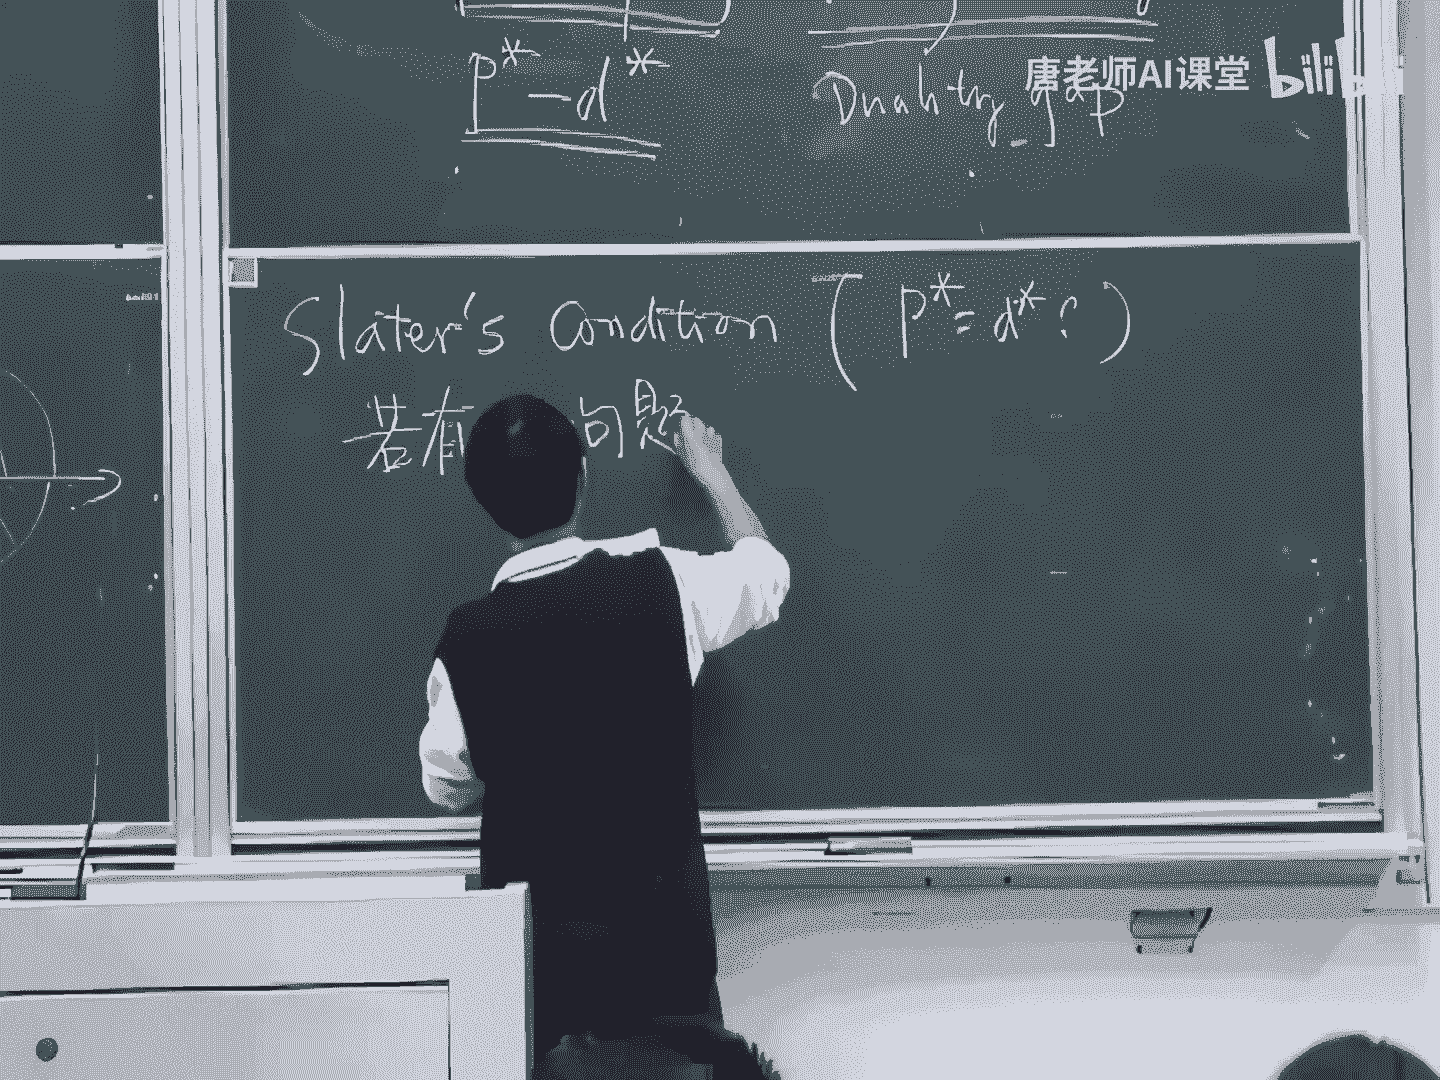 P* - d*
Duality gap
唐老师AI课堂 bilib
Slater's Condition ( P* = d* ? )
若有 句题